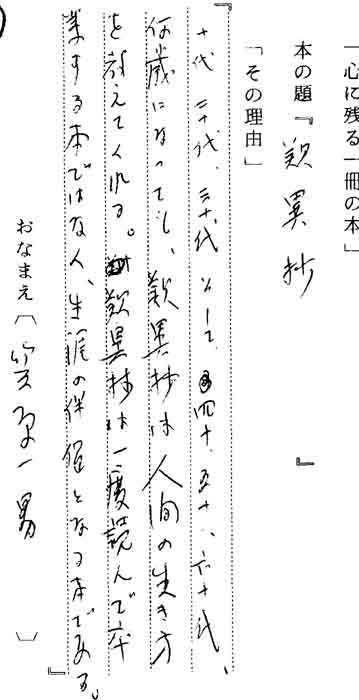 「心に残る一冊の本」
本の題『歎異抄』
「その理由」
『十代、二十代、三十代そして四十、五十、六十代、
何歳になっても、歎異抄は人間の生き方
を教えてくれる。歎異抄は一度読んで卒
業する本ではない、生涯の伴侶となる本である。』
おなまえ〔 一男 〕